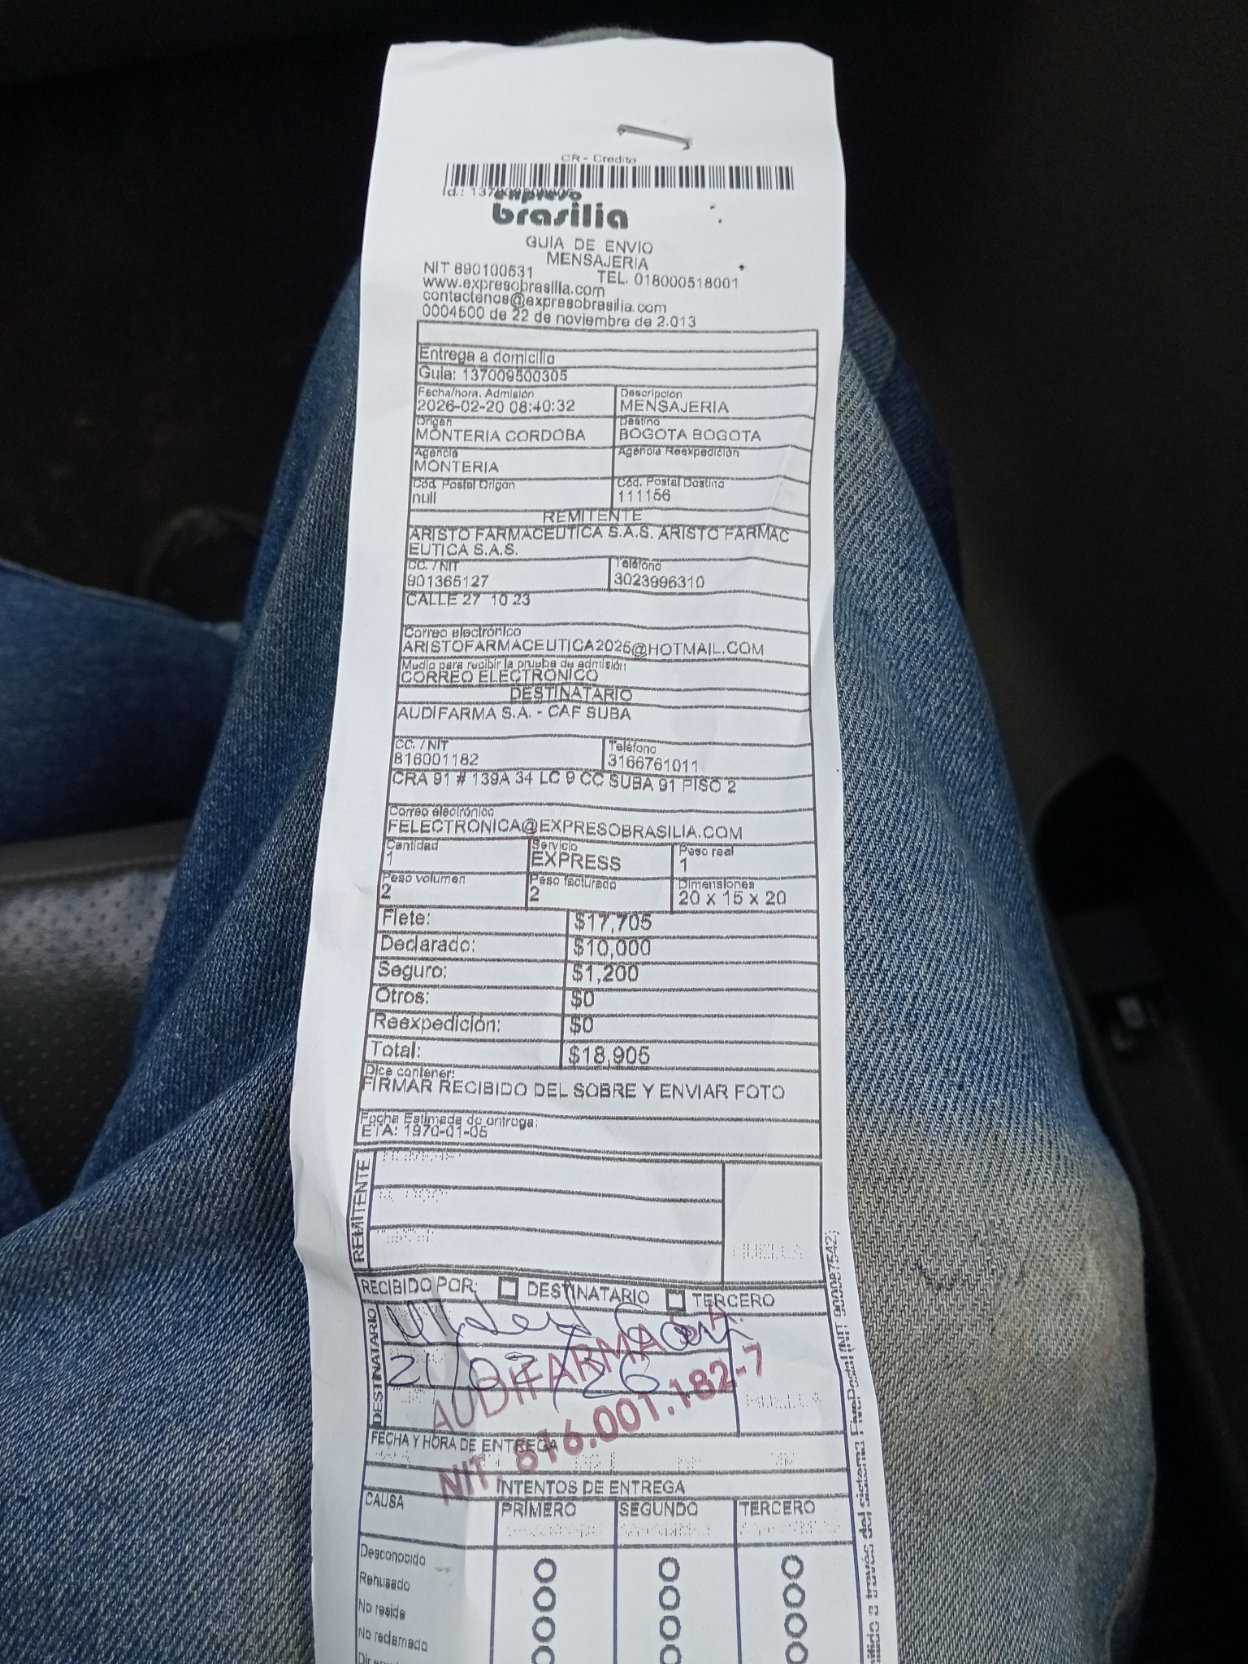 CR - Credito
Id.: 137
expreso
brasilia
GUIA DE ENVIO
MENSAJERIA
NIT 890100531 TEL. 018000518001
www.expresobrasilia.com
contactenos@expresobrasilia.com
0004500 de 22 de noviembre de 2.013
Entrega a domicilio
Guia: 137009500305
Fecha/hora. Admisión Descripción
2026-02-20 08:40:32 MENSAJERIA
Origen Destino
MONTERIA CORDOBA BOGOTA BOGOTA
Agencia Agencia Reexpedición
MONTERIA
Cód. Postal Origen Cód. Postal Destino
null 111156
REMITENTE
ARISTO FARMACEUTICA S.A.S. ARISTO FARMAC
EUTICA S.A.S.
CC. /NIT Teléfono
901365127 3023996310
CALLE 27 10 23
Correo electrónico
ARISTOFARMACEUTICA2025@HOTMAIL.COM
Medio para recibir la prueba de admisión
CORREO ELECTRONICO
DESTINATARIO
AUDIFARMA S.A. - CAF SUBA
CC. /NIT Teléfono
816001182 3166761011
CRA 91 # 139A 34 LC 9 CC SUBA 91 PISO 2
Correo electrónico
FELECTRONICA@EXPRESOBRASILIA.COM
Cantidad Servicio Peso real
1 EXPRESS 1
Peso volumen Peso facturado Dimensiones
2 2 20 x 15 x 20
Flete: $17,705
Declarado: $10,000
Seguro: $1,200
Otros: $0
Reexpedición: $0
Total: $18,905
Dice contener:
FIRMAR RECIBIDO DEL SOBRE Y ENVIAR FOTO
Fecha Estimada de entrega:
ETA: 1970-01-05
REMITENTE
HUELLA
RECIBIDO POR: DESTINATARIO TERCERO
DESTINATARIO
21/02/26
AUDIFARMA S.A
NIT. 816.001.182-7
HUELLA
FECHA Y HORA DE ENTREGA
INTENTOS DE ENTREGA
CAUSA PRIMERO SEGUNDO TERCERO
Desconocido
Rehusado
No reside
No reclamado
a través del sistema FivePostal (NIT 900087542)